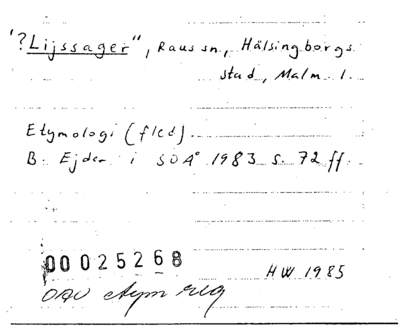 "?Lijssager", Raus sn, Hälsingborgs
stad, Malm. l.
Etymologi (fled).
B. Ejder i SOÅ 1983 s. 72 ff.
00025268
HW 1985
OAU etym reg